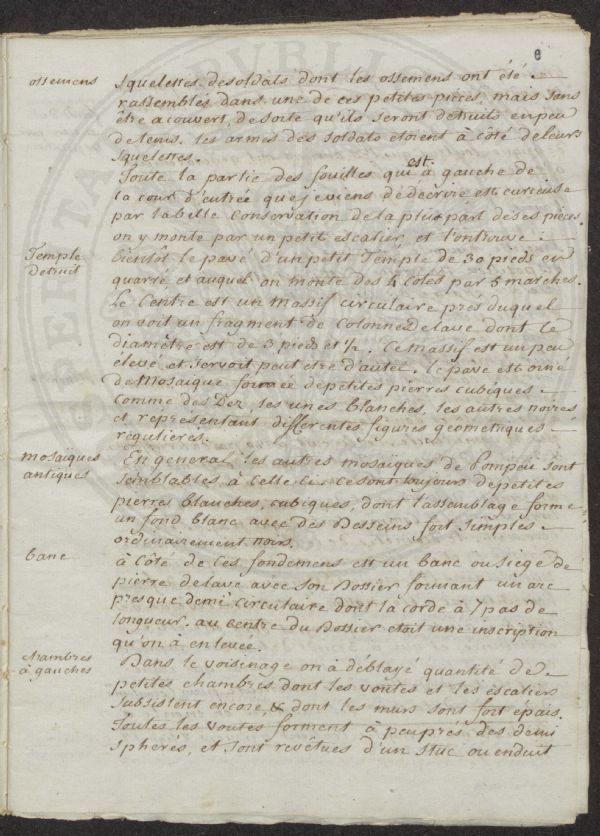 6
ossemens
Squelettes de soldats dont les ossemens ont été
rassemblés dans une de ces petites pièces, mais sans
être a couvert, de sorte qu'ils seront detruits en peu
de tems. les armes des soldats etoient à côté de leurs
squelettes.
Toute la partie des fouilles qui est à gauche de
la cour d'entrée que je viens de decrire est curieuse
par la belle Conservation de la plus part de ses pièces.
on y monte par un petit escalier, et l'on trouve
Temple
detruit
bientot le pavé d'un petit Temple de 30 pieds en
quarré et auquel on monte des 4 côtés par 5 marches.
Le Centre est un Massif circulaire prés duquel
on voit un fragment de Colonne de lave dont le
diamêtre est de 3 pieds et ½. Ce Massif est un peu
élevé et servoit peut etre d'autel. Le pavé est orné
de Mosaique formée de petites pierres cubiques
comme des Dez, les unes blanches, les autres noires
et representant differentes figures geometriques
regulieres.
mosaiques
antiques
En general les autres mosaiques de Pompeii sont
semblables à celle ci. ce sont toujours de petites
pierres blanches, cubiques, dont l'assemblage forme
un fond blanc avec des Desseins fort simples
ordinairement noirs.
banc
à côté de ces fondemens est un banc ou siège de
pierre de lave avec son Dossier formant un arc
presque demi circulaire dont la corde à 7 pas de
longueur. au centre du Dossier etoit une inscription
qu'on à enlevée.
chambres
à gauches
Dans le voisinage on à déblayé quantité de
petites chambres dont les voutes et les escaliers
subsistent encore, & dont les murs sont fort épais.
Toutes les voutes forment à peuprés des demi
sphéres, et sont revêtues d'un stuc ou enduit